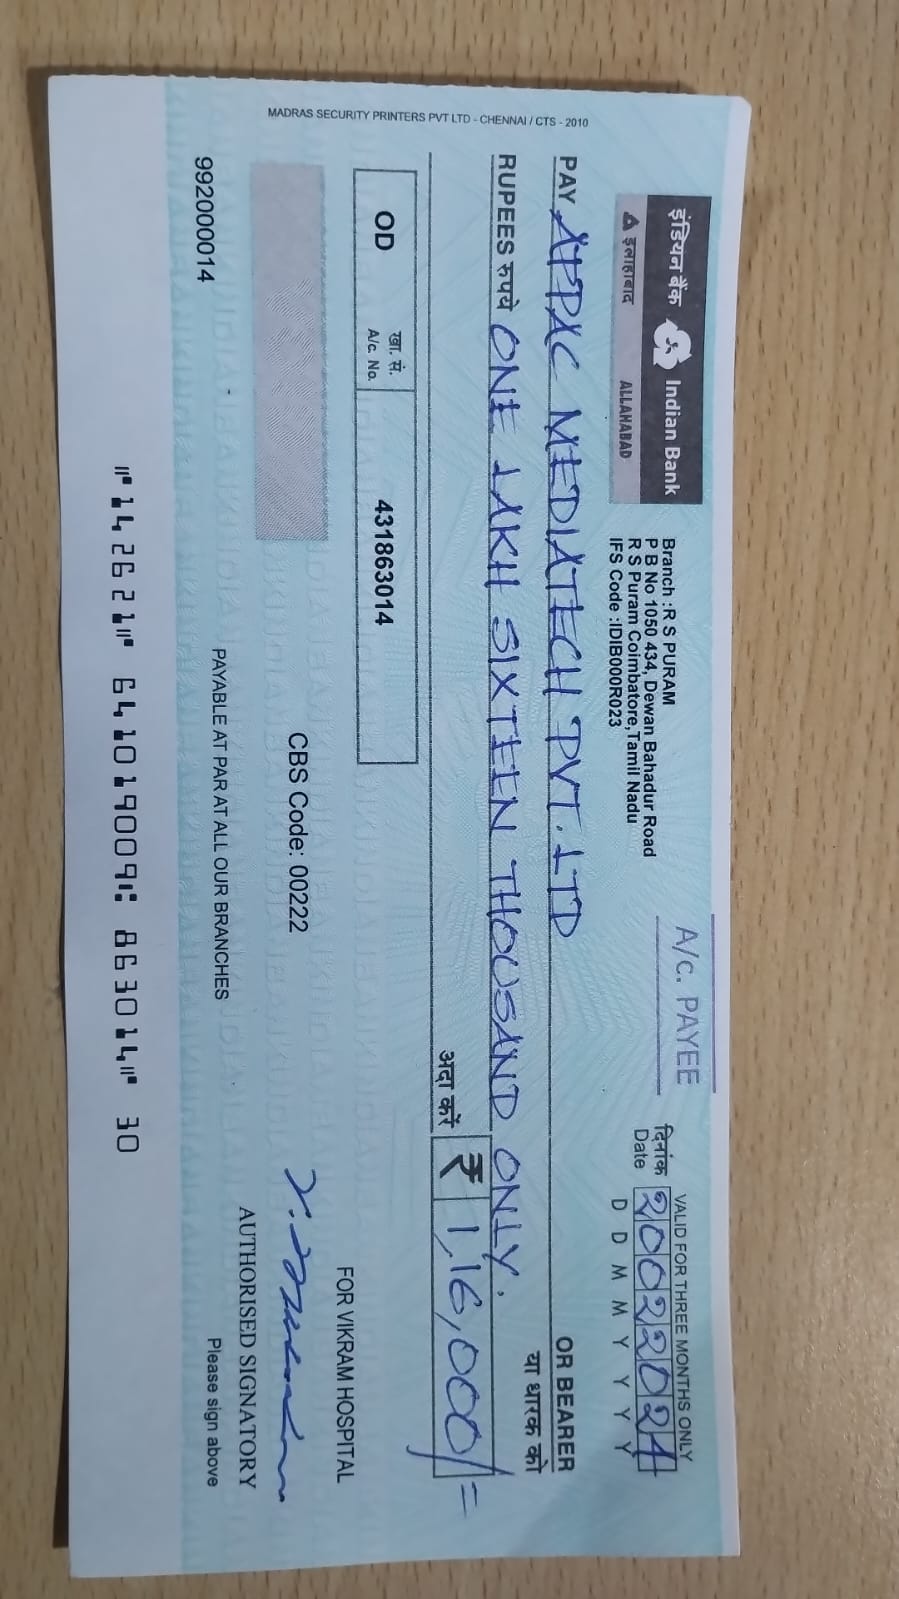 MADRAS SECURITY PRINTERS PVT LTD - CHENNAI / CTS - 2010
इंडियन बैंक Indian Bank
इलाहाबाद ALLAHABAD
Branch :R S PURAM
P B No 1050 434, Dewan Bahadur Road
R S Puram Coimbatore,Tamil Nadu
IFS Code :IDIB000R023
A/c. PAYEE
VALID FOR THREE MONTHS ONLY
दिनांक Date 20022024
D D M M Y Y Y Y
PAY APPAC MEDIATECH PVT. LTD OR BEARER
या धारक को
RUPEES रुपये ONE LAKH SIXTEEN THOUSAND ONLY.
अदा करें ₹ 1,16,000/=
OD खा. सं. A/c. No. 431863014
FOR VIKRAM HOSPITAL
CBS Code: 00222
AUTHORISED SIGNATORY
992000014 PAYABLE AT PAR AT ALL OUR BRANCHES Please sign above
⑈142621⑈ 641019009⑆ 863014⑈ 30